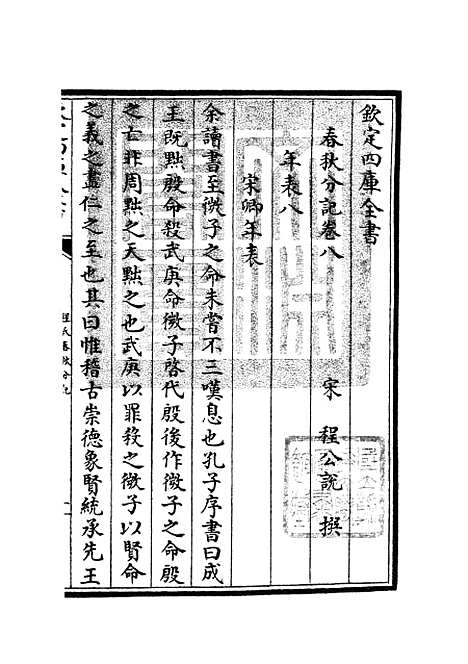 欽定四庫全書
春秋分記卷八
宋 程公說 撰
年表八
宋卿年表
余讀書至微子之命未嘗不三嘆息也孔子序書曰成
王既黜殷命殺武庚命微子啓代殷後作微子之命殷
之亡非周黜之天黜之也武庚以罪殺之微子以賢命
之義之盡仁之至也其曰惟稽古崇德象賢統承先王
程氏春秋分記